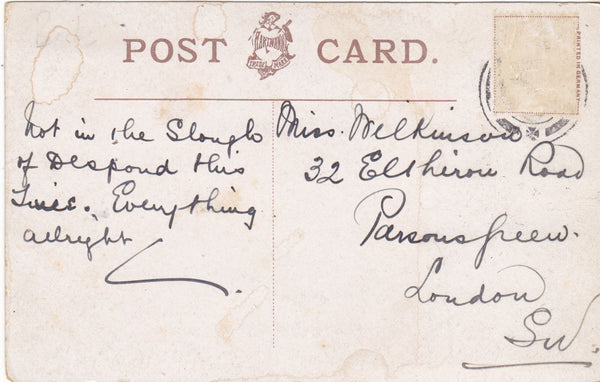 POST CARD.
HARTMANN
TRADE MARK
PRINTED IN GERMANY
Not in the Slough
of Despond this
Time. Everything
allright
Miss. Wilkinson
32 Eltheron Road
Parsons green.
London
SW.